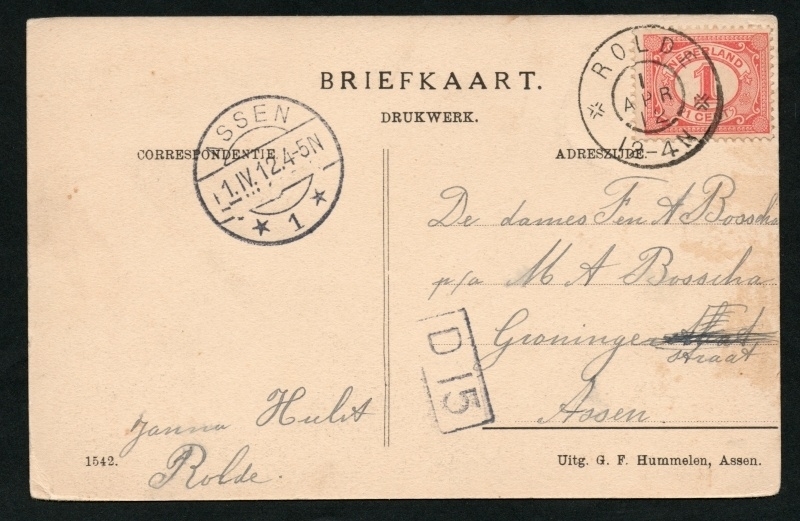 BRIEFKAART.
DRUKWERK.
CORRESPONDENTIE
ADRESZIJDE.
ASSEN
1.IV.12.4-5N
1
ROLDE
1
APR
12
12-4N
NEDERLAND
1
1 CENT
De dames F en A Bosscha
p/a M A Bosscha
Groninger
straat
Assen.
D 15
Janna Hulst
Rolde.
1542.
Uitg. G. F. Hummelen, Assen.